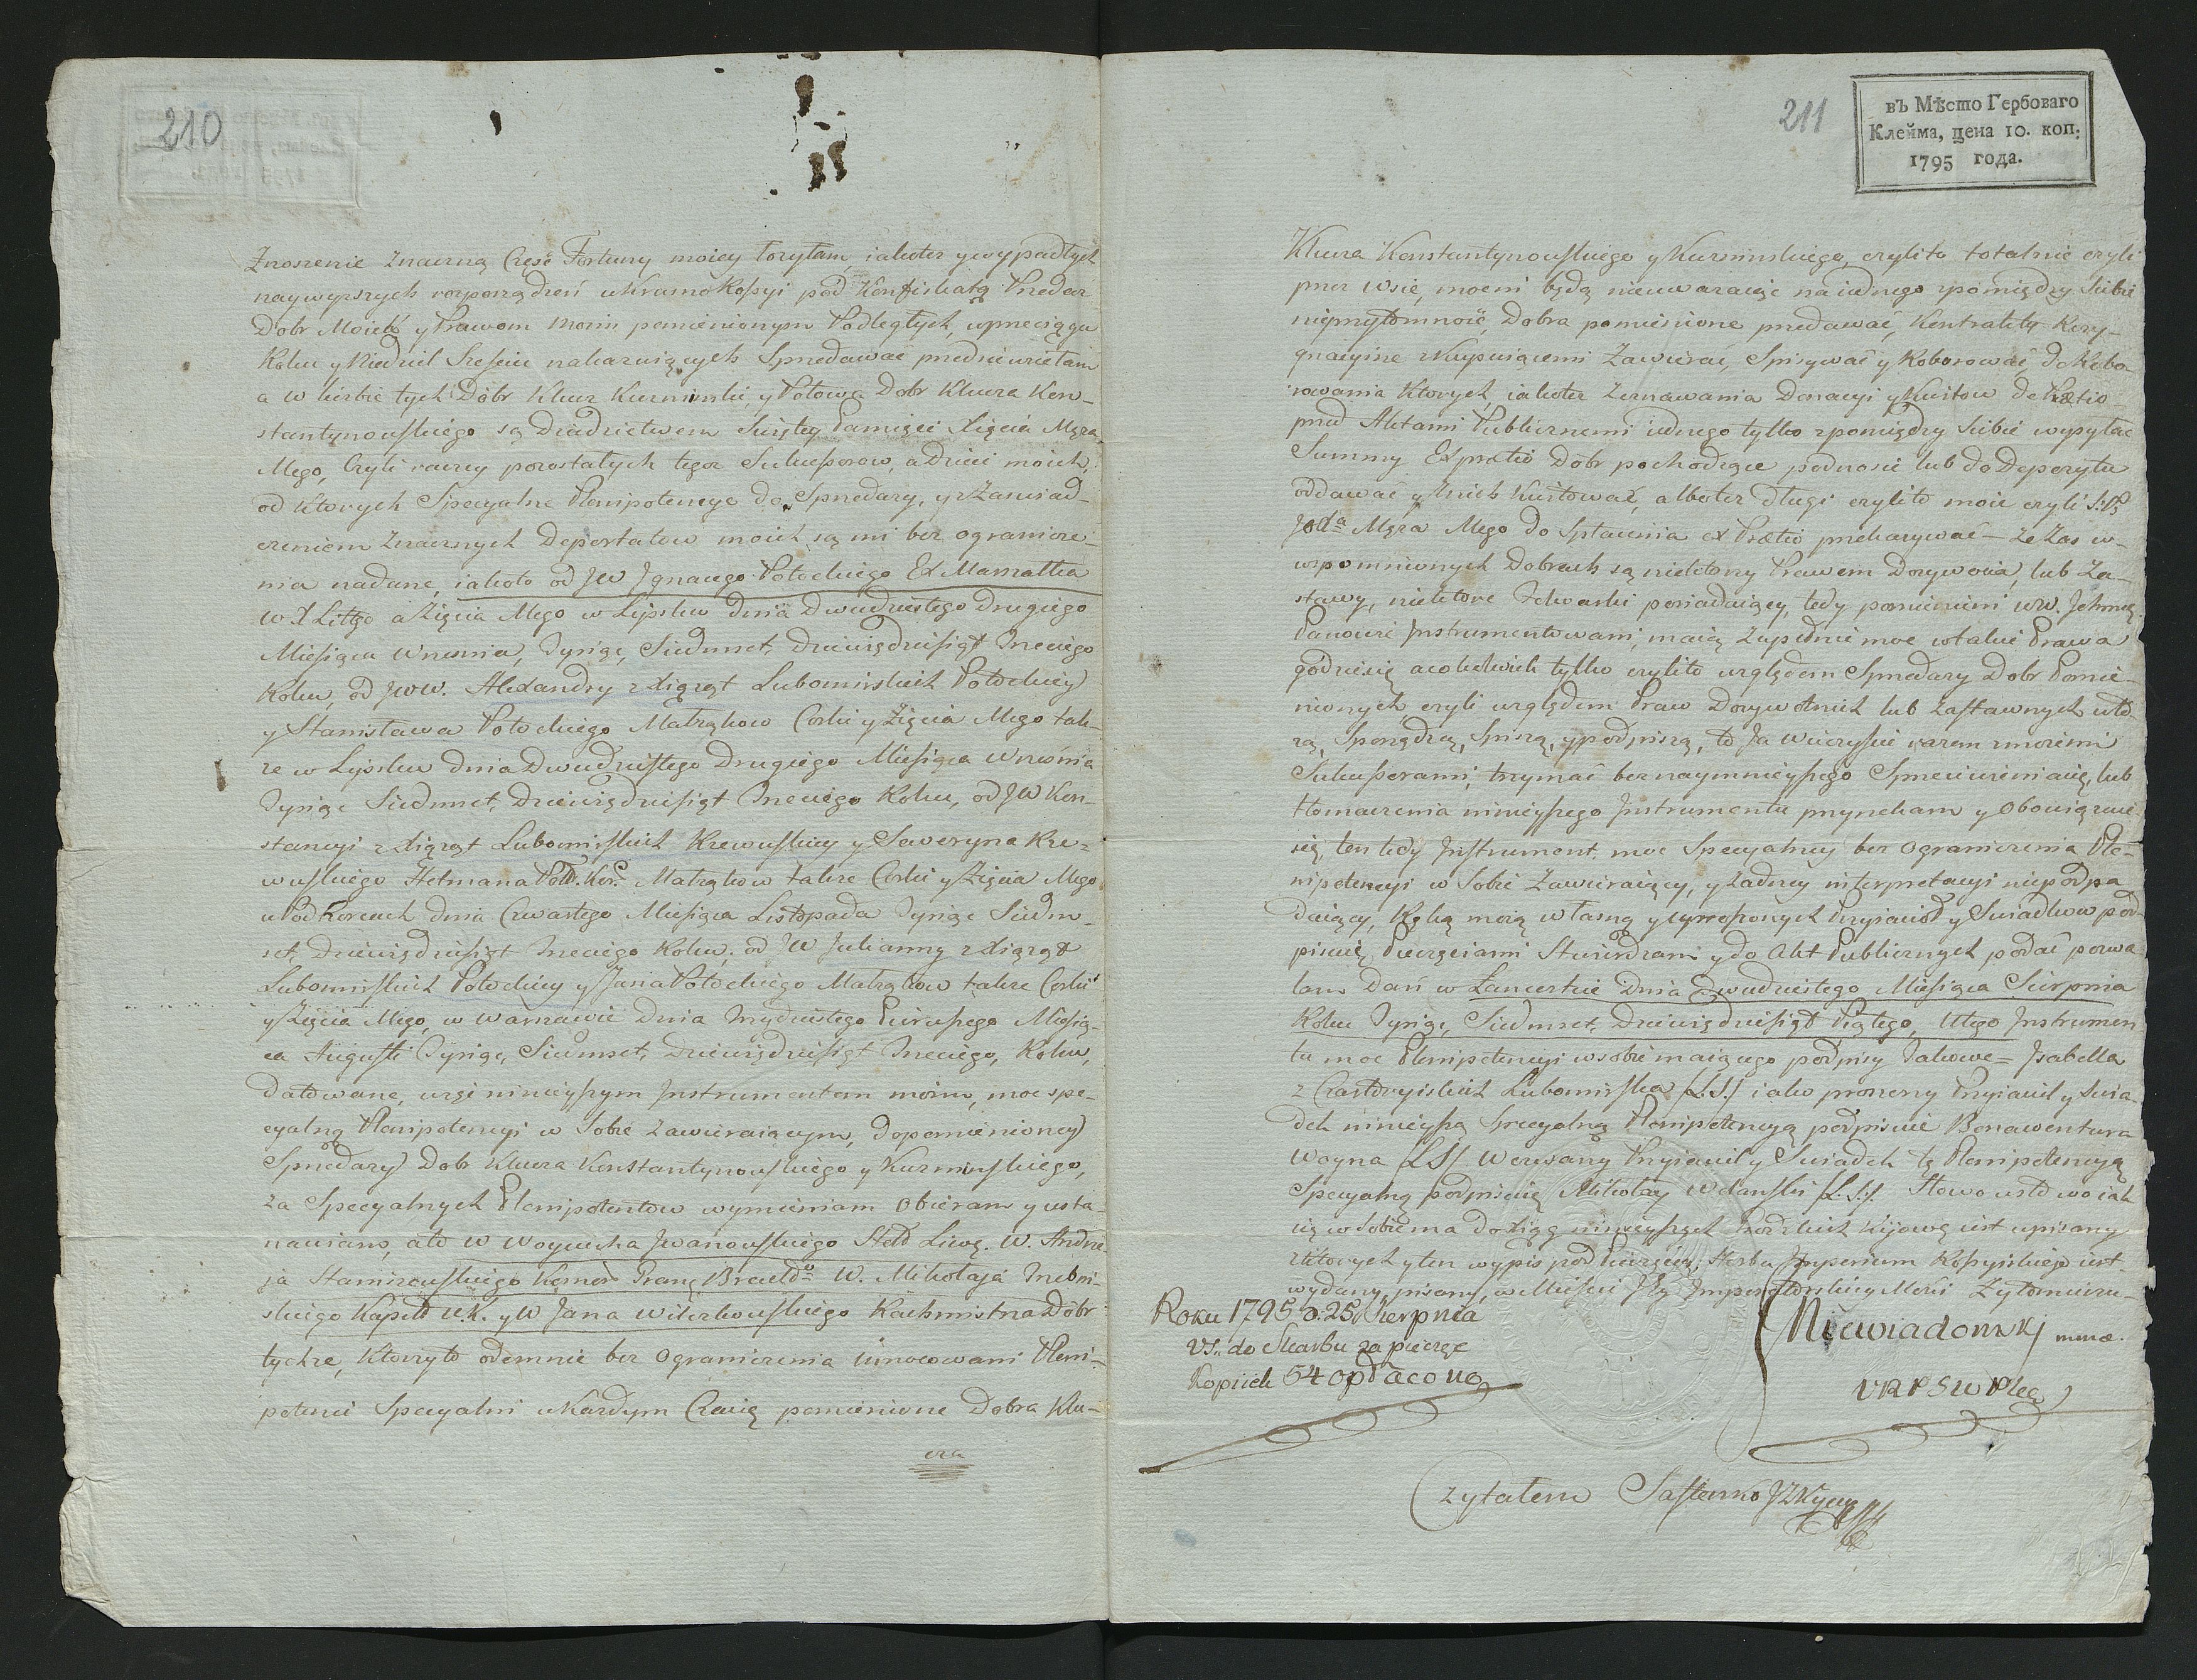 210
Znoszenie Znaczną Część Fortuny moiey łożyłam, iakoteż z wypadłych
naywyższych rozporządzeń ukramo Rossyi pod Konfiskatą Przedaż
Dobr Moich y Prawom moim pomienionym Podległych, w przeciągu
Roku y Niedziel Sześciu nakazuiących Sprzedawać przedsiewzięłam
a w liczbie tych Dobr Klucz Kuzminski, y Połowa Dobr Klucza Kon-
stantynowskiego są Dziedzictwem Swiętey Pamięci Xięcia Męża
Mego, Czyli raczey pozostałych tegoż Sukcessorow, a Dzieci moich,
od Ktorych Specyalne Plenipotencye do Sprzedaży, y z Zaświad-
czeniem Znacznych Deportatow moich są mi bez ogranicze-
nia nadane, iakoto od JW Jgnacego Potockiego Ex Marszałka
W X Littgo a Zięcia Mego w Lipsku Dnia Dwudziestego Drugiego
Miesiąca Września, Tysiąc, Siedmset, Dziewięćdziesiąt Trzeciego
Roku, od JWW. Alexandry z Xiążąt Lubomirskich Potockiey
y Stanisława Potockiego Małżąkow Corki y Zięcia Mego tak-
że w Lipsku Dnia Dwudziestego Drugiego Miesiąca Września
Tysiąc Siedmset, Dziewięćdziesiąt Trzeciego Roku, od JW Kon-
stancyi z Xiążąt Lubomirskich Rzewuskiey y Seweryna Rze-
wuskiego Hetmana Poll. Kor. Małżąkow także Corki y Zięcia Mego
w Podhorcach dnia Czwartego Miesiąca Listopada Tysiąc Siedm-
set, Dziewięćdziesiąt Trzeciego Roku, od JW Julianny z Xiążąt
Lubomirskich Potockiey y Jana Potockiego Małżąkow także Corki
y Zięcia Mego, w Warszawie Dnia Trzydziestego Pierwszego Miesią-
ca Augusti Tysiąc, Siedmset, Dziewięćdziesiąt Trzeciego, Roku,
Datowane, więc ninieyszym Jnstrumentem moim, moc spe-
cyalną Plenipotencyi w Sobie Zawieraiącym, do pomienioney
Sprzedaży Dobr Klucza Konstantynowskiego y Kuzminskiego,
za Specyalnych Plenipotentow wymieniam Obieram y usta-
nawiam, ato W Woyciecha Jwanowskiego Skld Liwę. W. Andrze-
ja Stamirowskiego Komor Granę Bracldo W. Mikołaja Trebni-
skiego Kapitt W.K. y W Jana Witerkowskiego Rachmistrza Dobr
tychże, Ktorzyto odemnie bez Ograniczenia Umocowani Pleni-
potenci Specyalni w Każdym Czasię pomienione Dobra Klu-
cza
211
въ Мѣсто Гербоваго
Клейма, цена 10. коп:
1795 года.
Klucza Konstantynowskiego y Kuzminskiego, czylito totalnie czyli
przez Wsie, mocni będą nieuważaiąc na iednego zpomiędzy Siebie
nieprzytomność, Dobra pomienione przedawać, Kontrakty Rezy-
gnacyine z Kupuiącemi Zawierać, Spisywać y Roborować, do Robo-
rowania Ktorych, iakoteż Zeznawania Donacyi y Kwitow de Prætio
przed Aktami Publicznemi iednego tylko zpomiędzy Siebie wysyłac
Summy Ex prætio Dobr pochodzące podnosić lub do Depozytu
oddawać y Znich Kwitować, albotez Długi czylito moie czyli S: P:
Jodla Męża Mego do Spłacenia ex Prætio przekazywać — Ze Zas w-
wspomnionych Dobrach są niektorzy Prawem Dożywocia, lub Za-
stawy, niektore Folwarki posiadaiący, tedy pomienieni WW. Jchmę
Panowie Jnstrumentowani, maią zupełnie moc wtakie Prawa
godzićsię acokolwiek tylko czylito względem Sprzedaży Dobr Pomie-
nionych czyli względem Praw Dożywotnich lub Zastawnych uto-
żą, Sporządzą, Spiszą, y podpiszą, to Ja Wieczyscie wraz z moiemi
Sukcessorami, trzymać beznaymnieyszego Sprzeciwieniasię, lub
tłomaczenia ninieyszego Jnstrumentu przyrzekam y Obowiązuie
się, ten tedy Jnstrument, moc Specyalney bez Ograniczenia Ple-
nipotencyi w Sobie Zawieraiący, y żadney interpretacyi niepodpa-
daiący, Ręką moią własną y uproszonych Przyiacioł y Swiadkow pod-
pisuię, Pieczęciami Stwierdzam y do Akt Publicznych podać pozwa-
lam Dań w Łancucie Dnia Dwudziestego Miesiąca Sierpnia
Roku Tysiąc, Siedmset, Dziewięćdziesiąt Piątego, Utego Jnstrumen-
tu moc Plenipotencyi wsobie maiącego podpisy Takowe = Jsabella
z Czartoryiskich Lubomirska (L.S.) iako proszony Przyiaciel y Swia-
dek ninieyszą Specyalną Plenipotencyą podpisuie Bonawentura
Woyna (L.S.) Wezwany Przyiaciel y Swiadek tę Plenipotencyą
Specyalną podpisuię Mikołay Wolanski (L.S.). Słowo wsłowo iak
się w Sobie ma do Xiąg ninieyszych Grodzkich Kijową iest wpisany
z Ktorych y ten wypis pod Pieczęcią Herbu Jmperium Rossyiskiego iest
wydany, pisany, w Mieście Jey Jmperatorskiey Mości Zytomierzu
Roku 1795 d. 25 Sierpnia
vs. do Skarbu za pieczęc
Kopiiek 54 opłacono
Niewiadomskj mmæ.
Czytałem Sasłenko